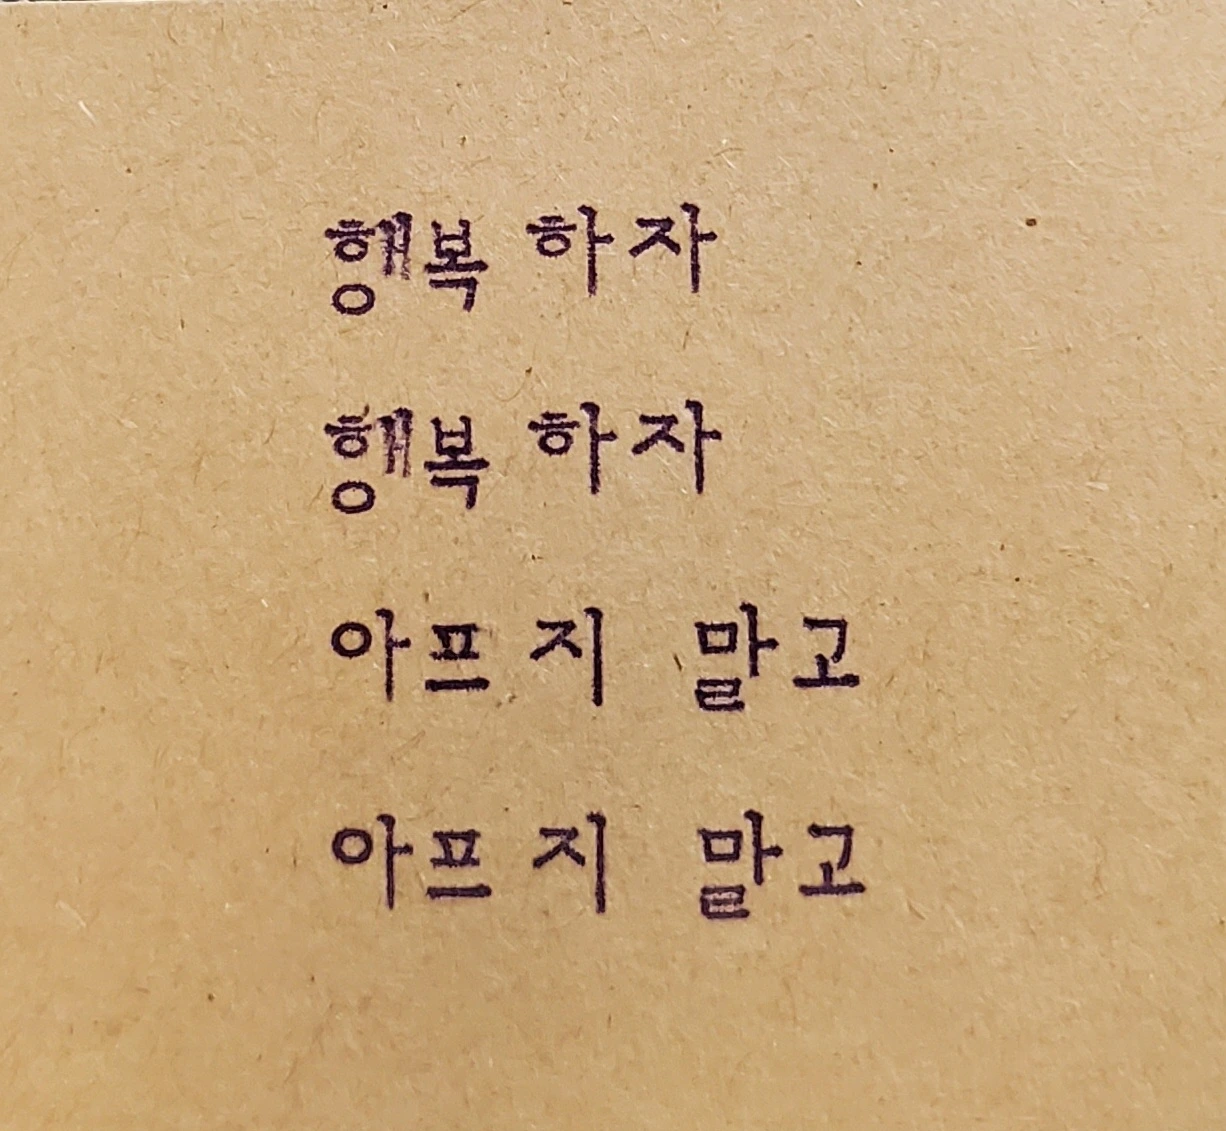 행복 하자
행복 하자
아프 지 말고
아프 지 말고